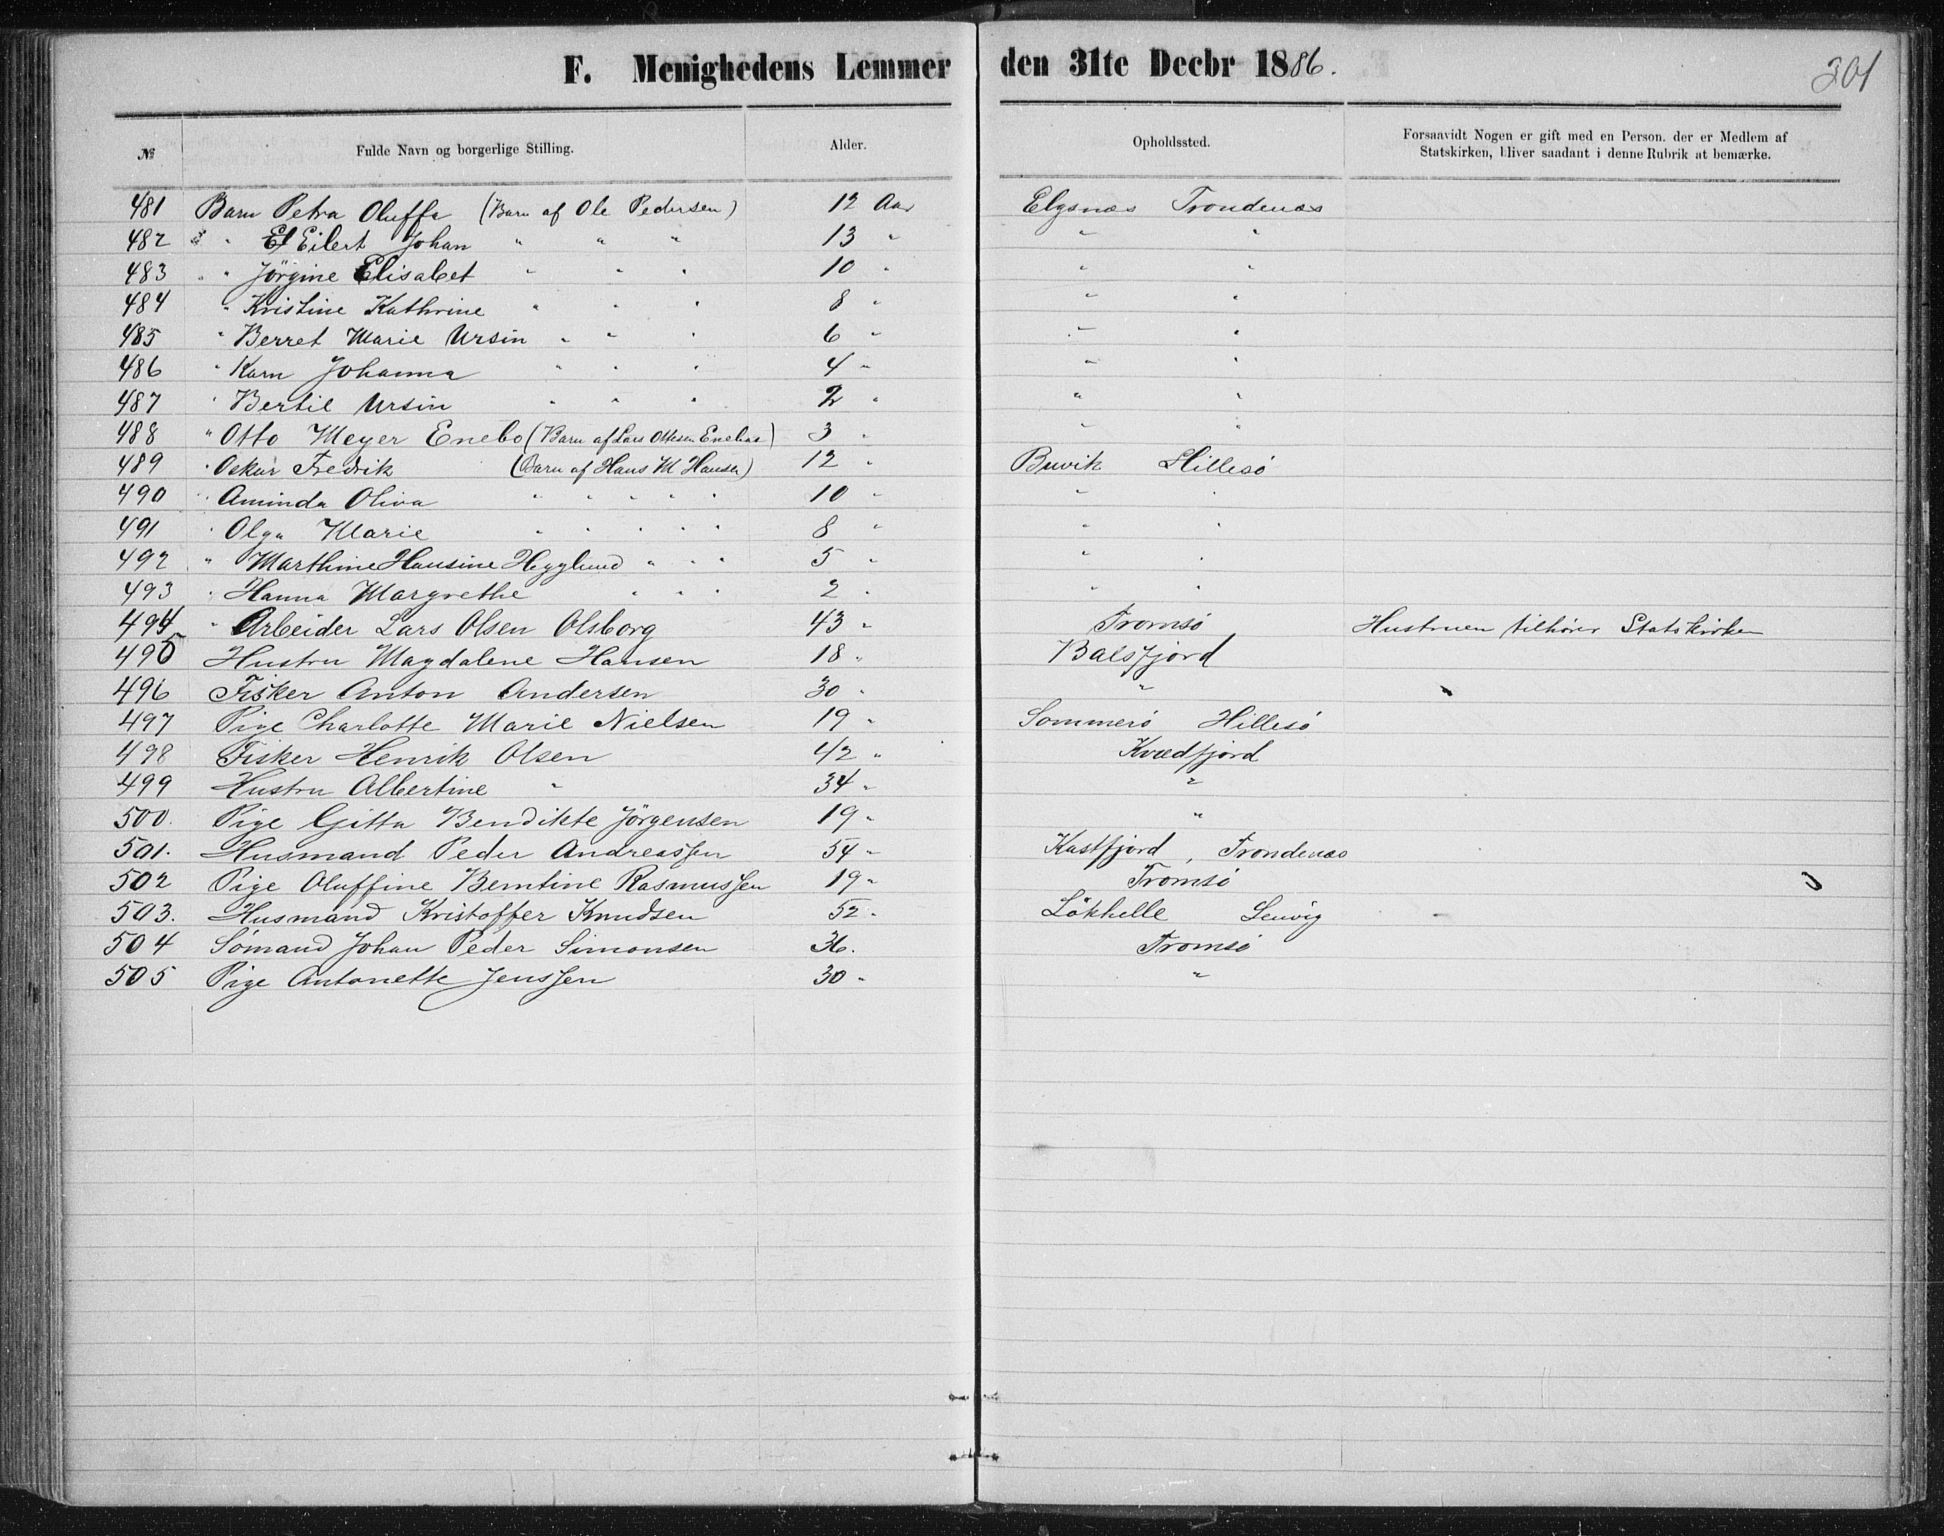 F. Menighedens Lemmer den 31te Decbr 1886. 301
№ Fulde Navn og borgerlige Stilling. Alder. Opholdssted. Forsaavidt Nogen er gift med en Person, der er Medlem af
Statskirken, bliver saadant i denne Rubrik at bemærke.
481 Barn Petra Oluffa (Barn af Ole Pedersen) 12 Aar Elgsnæs Trondenæs
482 " Eilert Johan " " " 13 " " "
483 " Jörgine Elisabet " " " 10 " " "
484 " Kristine Kathrine " " " 8 " " "
485 " Berret Marie Ursin " " " 6 " " "
486 " Karn Johanna " " " 4 " " "
487 " Bertil Ursin " " " 2 " " "
488 " Otto Meyer Enebo (Barn af Lars Ottesen) 3 " " "
489 " Oskar Fredrik (Barn af Hans M Hansen) 12 " Buvik Hillesö
490 " Aminda Oliva " " " " " 10 " " "
491 " Olga Marie " " " " " 8 " " "
492 " Marthine Hansine Hegglund " " " 5 " " "
493 " Hanna Margrethe " " " 2 " " "
494 " Arbeider Lars Olsen Olsborg 43 " Tromsö Hustruen tilhörer Statskirken
495 Hustru Magdalene Hansen 18 " Balsfjord
496 Fisker Anton Andersen 30 " "
497 Pige Charlotte Marie Nielsen 19 " Sommerö Hillesö
498 Fisker Henrik Olsen 42 " Kvædfjord
499 Hustru Albertine " 34 " "
500. Pige Gitta Bendikte Jörgensen 19 " "
501. Husmand Peder Andreassen 54 " Kastfjord, Trondenæs
502 Pige Oluffine Berntine Rasmussen 19 " Tromsö
503. Husmand Kristoffer Knudsen 52 " Lökhelle Lenvig
504 Sömand Johan Peder Simonsen 36. Tromsö
505 Pige Antonette Jenssen 30 " "